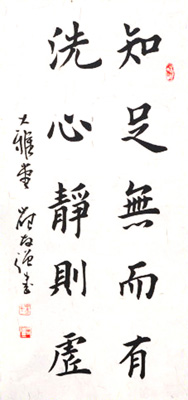 知足無而有
洗心靜則虛
大雅堂